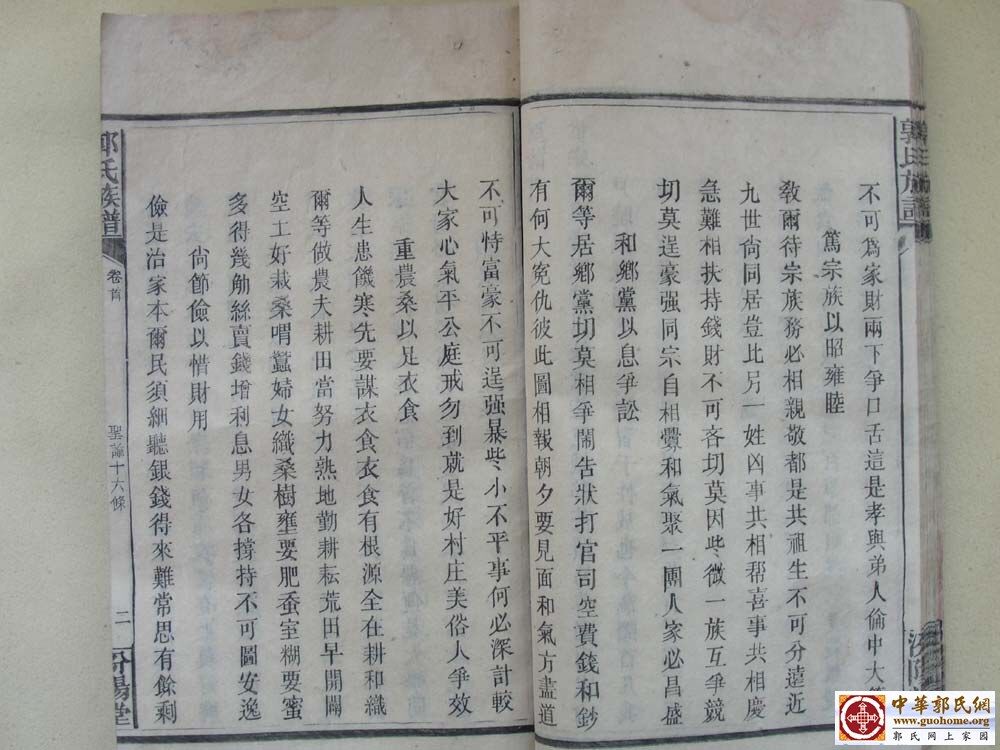 不可爲家財兩下爭口舌這是孝與弟人倫中大
篤宗族以昭雍睦
敎爾待宗族務必相親敬都是共祖生不可分遠近
九世尙同居豈比另一姓凶事共相帮喜事共相慶
急難相扶持錢財不可吝切莫因些微一族互爭競
切莫逞豪强同宗自相釁和氣聚一團人家必昌盛
和鄉黨以息爭訟
爾等居鄉黨切莫相爭鬧告狀打官司空費錢和鈔
有何大寃仇彼此圖相報朝夕要見面和氣方盡道
不可恃富豪不可逞强暴些小不平事何必深計較
大家心氣平公庭戒勿到就是好村庄美俗人爭效
重農桑以足衣食
人生患饑寒先要謀衣食衣食有根源全在耕和織
爾等做農夫耕田當努力熟地勤耕耘荒田早開闢
空土好栽桑喂蠶婦女織桑樹壅要肥蚕室糊要蜜
多得幾觔絲賣錢增利息男女各撐持不可圖安逸
尙節儉以惜財用
儉是治家本爾民須細聽銀錢得來難常思有餘剩
郭氏族譜
卷首
聖諭十六條
二
汾陽堂
郭氏族譜
中華郭氏網
www.guohome.org
郭氏网上家園